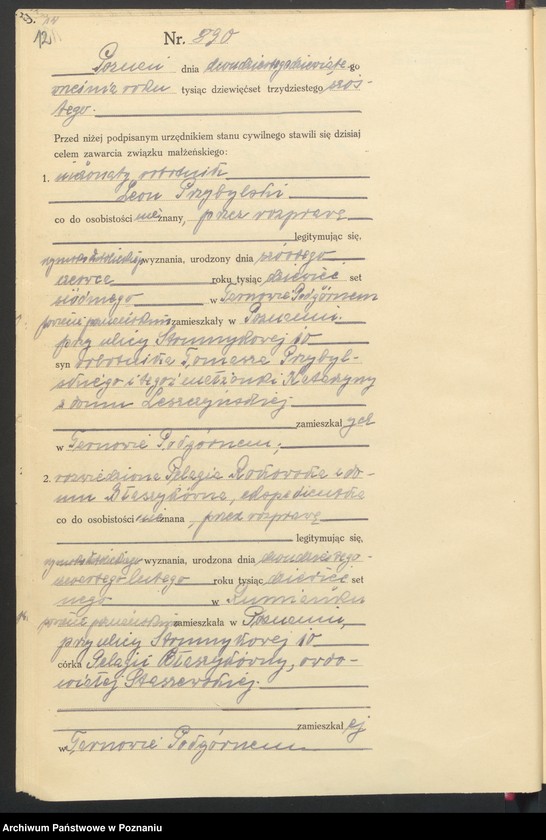 12
Nr. 990
Poznań dnia dwudziestego dziewiąte-go
września roku tysiąc dziewięćset trzydziestego szós-
tego.
Przed niżej podpisanym urzędnikiem stanu cywilnego stawili się dzisiaj
celem zawarcia związku małżeńskiego:
1. nieżonaty robotnik
Leon Przybylski
co do osobistości nieznany, przez rozprawę
legitymując się,
rzymskokatolickiego wyznania, urodzony dnia szóstego
czerwca roku tysiąc dziewięć set
siódmego w Tarnowie Podgórnem
powiat poznański zamieszkały w Poznaniu
przy ulicy Strumykowej 10
syn robotnika Tomasza Przybyl-
skiego i tegoż małżonki Katarzyny
z domu Leszczyńskiej
zamieszkałych
w Tarnowie Podgórnem;
2. rozwiedziona Pelagia z do-
mu Błaszykówna, ekspedientka
co do osobistości nieznana, przez rozprawę
legitymując się,
rzymskokatolickiego wyznania, urodzona dnia dwudziestego
czwartego lutego roku tysiąc dziewięć set
w Rumianku
powiat poznański zamieszkała w Poznaniu,
przy ulicy Strumykowej 10
córka Pelagii Błaszykówny, owdo-
wiałej Staszewskiej.
zamieszkałej
w Tarnowie Podgórnem
Archiwum Państwowe w Poznaniu